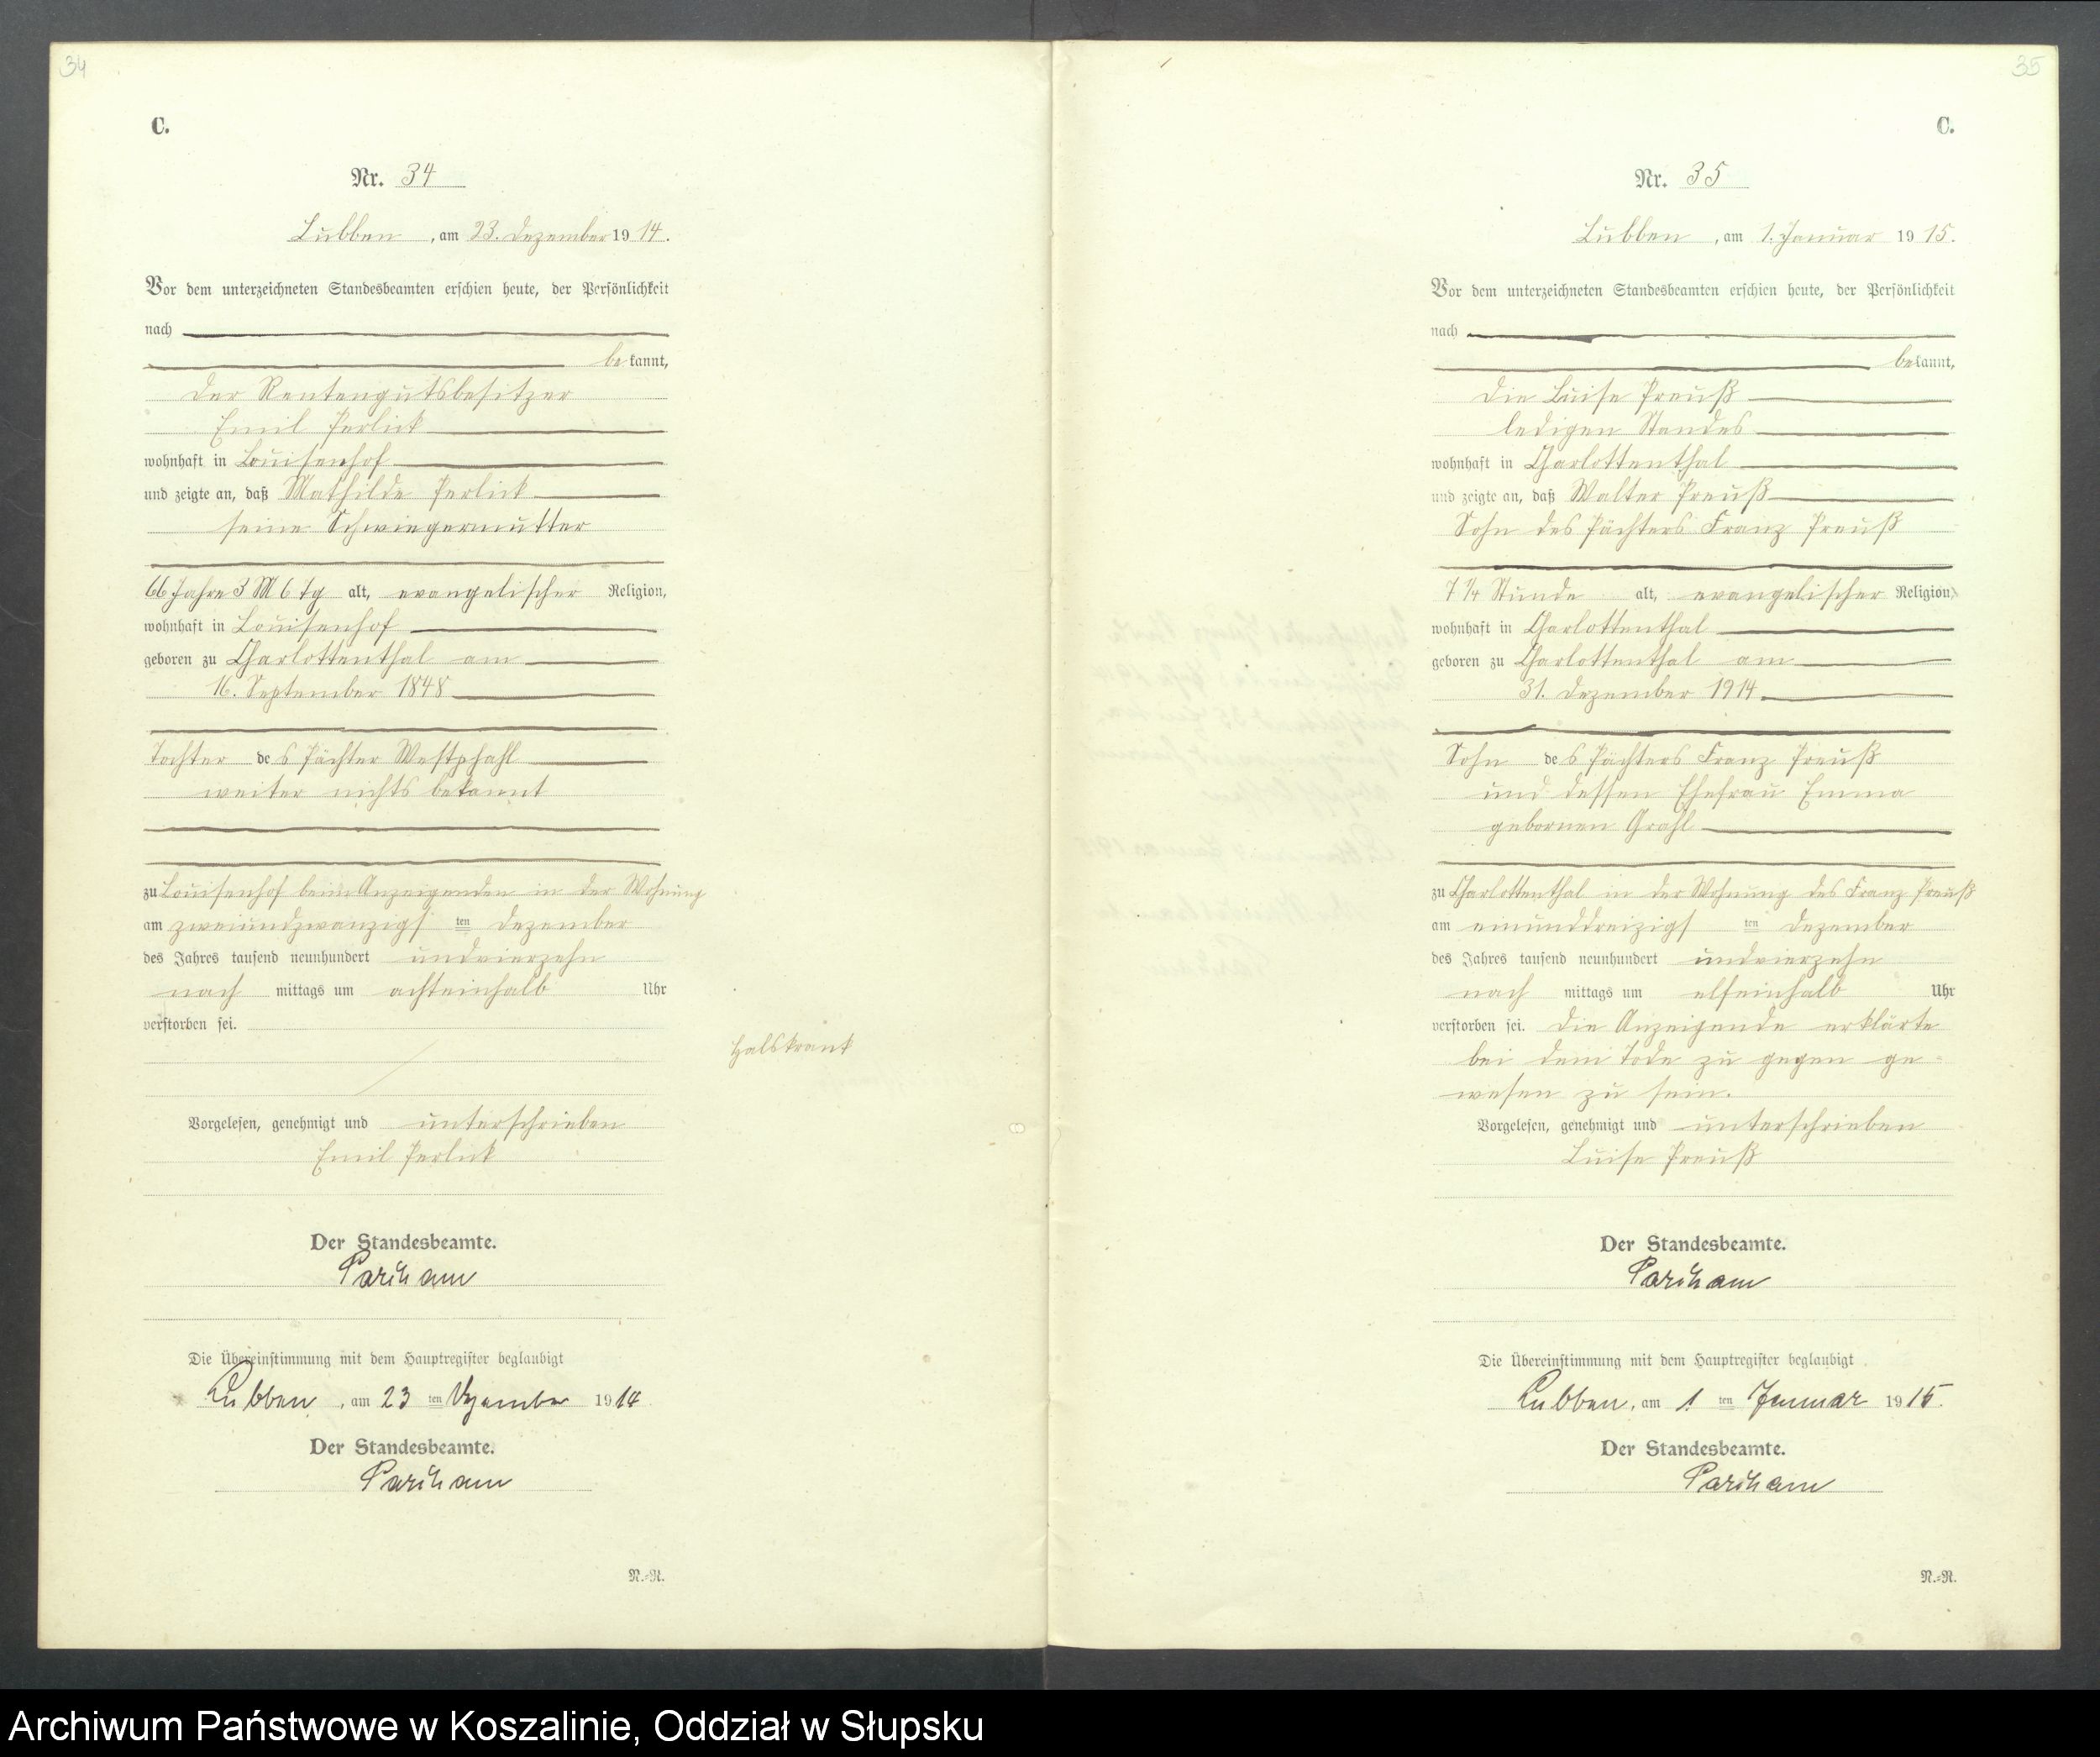 34
C.
Nr. 34
Lubben, am 23. Dezember 1914.
Vor dem unterzeichneten Standesbeamten erschien heute, der Persönlichkeit
nach
bekannt,
der Rentengutsbesitzer
Emil Perlick
wohnhaft in Louisenhof
und zeigte an, daß Mathilde Perlick
seine Schwiegermutter
66 Jahre 3 M 6 Tg alt, evangelischer Religion,
wohnhaft in Louisenhof
geboren zu Charlottenthal am
16. September 1848
Tochter des Pächter Westphahl
weiter nichts bekannt
zu Louisenhof beim Anzeigenden in der Wohnung
am zweiundzwanzigsten Dezember
des Jahres tausend neunhundert undvierzehn
nach mittags um achteinhalb Uhr
verstorben sei.
Halskrank
Vorgelesen, genehmigt und unterschrieben
Emil Perlick
Der Standesbeamte.
Die Übereinstimmung mit dem Hauptregister beglaubigt
Lubben, am 23 ten Dezember 1914
Der Standesbeamte.
N.=R.
35
C.
Nr. 35
Lubben, am 1. Januar 1915.
Vor dem unterzeichneten Standesbeamten erschien heute, der Persönlichkeit
nach
bekannt,
die Luise Preuß
ledigen Standes
wohnhaft in Charlottenthal
und zeigte an, daß Walter Preuß
Sohn des Pächters Franz Preuß
7 1/4 Stunde alt, evangelischer Religion,
wohnhaft in Charlottenthal
geboren zu Charlottenthal am
31. Dezember 1914
Sohn des Pächters Franz Preuß
und dessen Ehefrau Emma
gebornen Grahl
zu Charlottenthal in der Wohnung des Franz Preuß
am einunddreizigsten Dezember
des Jahres tausend neunhundert undvierzehn
nach mittags um elfeinhalb Uhr
verstorben sei. Die Anzeigende erklärte
bei dem Tode zu gegen ge-
wesen zu sein.
Vorgelesen, genehmigt und unterschrieben
Luise Preuß
Der Standesbeamte.
Die Übereinstimmung mit dem Hauptregister beglaubigt
Lubben, am 1. ten Januar 1915.
Der Standesbeamte.
N.=R.
Archiwum Państwowe w Koszalinie, Oddział w Słupsku